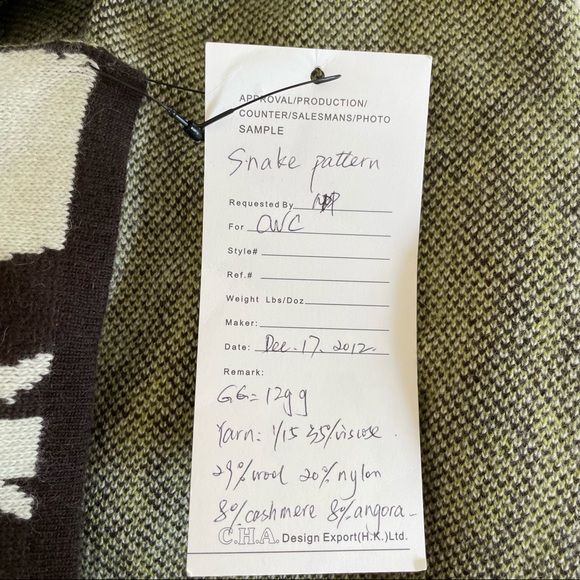 APPROVAL/PRODUCTION/
COUNTER/SALESMANS/PHOTO
SAMPLE
Snake pattern
Requested By
For OWC
Style#
Ref.#
Weight Lbs/Doz
Maker:
Date: Dec. 17. 2012.
Remark:
GG= 12gg
Yarn: 1/15 35% viscose.
29% wool 20% nylon
8% cashmere 8% angora
C.H.A. Design Export(H.K.)Ltd.